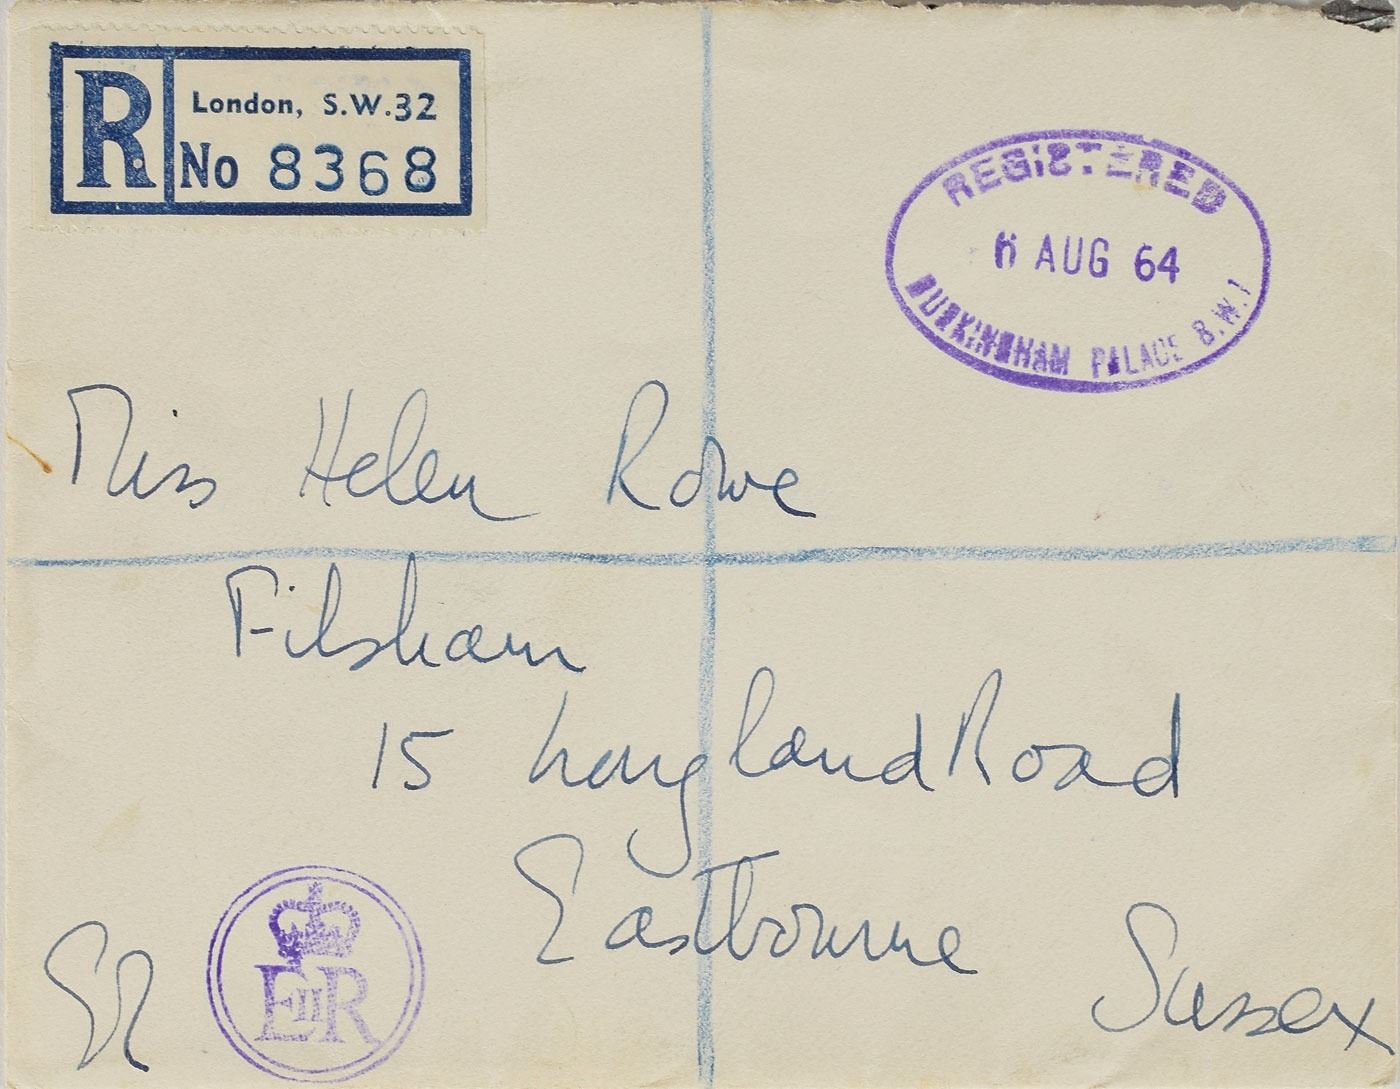 R
London, S.W.32
No 8368
REGISTERED
6 AUG 64
BUCKINGHAM PALACE S.W.1
Miss Helen Rowe
Filsham
15 Longland Road
Eastbourne
Sussex
ER
EIIR